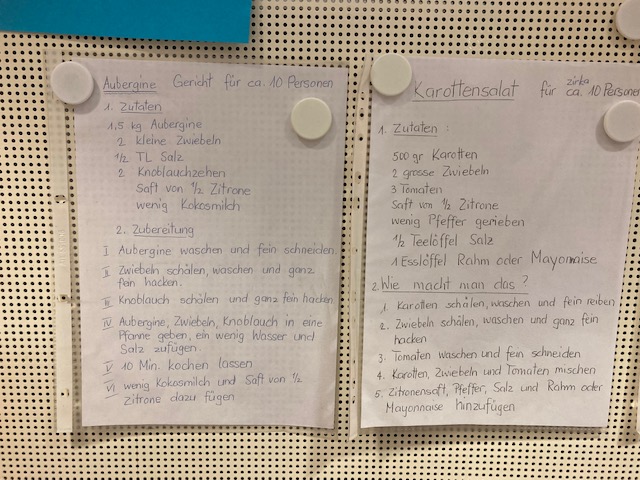 Aubergine Gericht für ca. 10 Personen
1. Zutaten
1,5 kg Aubergine
2 kleine Zwiebeln
1/2 TL Salz
2 Knoblauchzehen
Saft von 1/2 Zitrone
wenig Kokosmilch
2. Zubereitung
I Aubergine waschen und fein schneiden
II Zwiebeln schälen, waschen und ganz
fein hacken.
III Knoblauch schälen und ganz fein hacken
IV Aubergine, Zwiebeln, Knoblauch in eine
Pfanne geben, ein wenig Wasser und
Salz zufügen.
V 10 Min. kochen lassen
VI wenig Kokosmilch und Saft von 1/2
Zitrone dazu fügen
Karottensalat für zirka ca. 10 Personen
1. Zutaten :
500 gr Karotten
2 grosse Zwiebeln
3 Tomaten
Saft von 1/2 Zitrone
wenig Pfeffer gerieben
1/2 Teelöffel Salz
1 Esslöffel Rahm oder Mayonnaise
2. Wie macht man das ?
1. Karotten schälen, waschen und fein reiben
2. Zwiebeln schälen, waschen und ganz fein
hacken
3. Tomaten waschen und fein schneiden
4. Karotten, Zwiebeln und Tomaten mischen
5. Zitronensaft, Pfeffer, Salz und Rahm oder
Mayonnaise hinzufügen